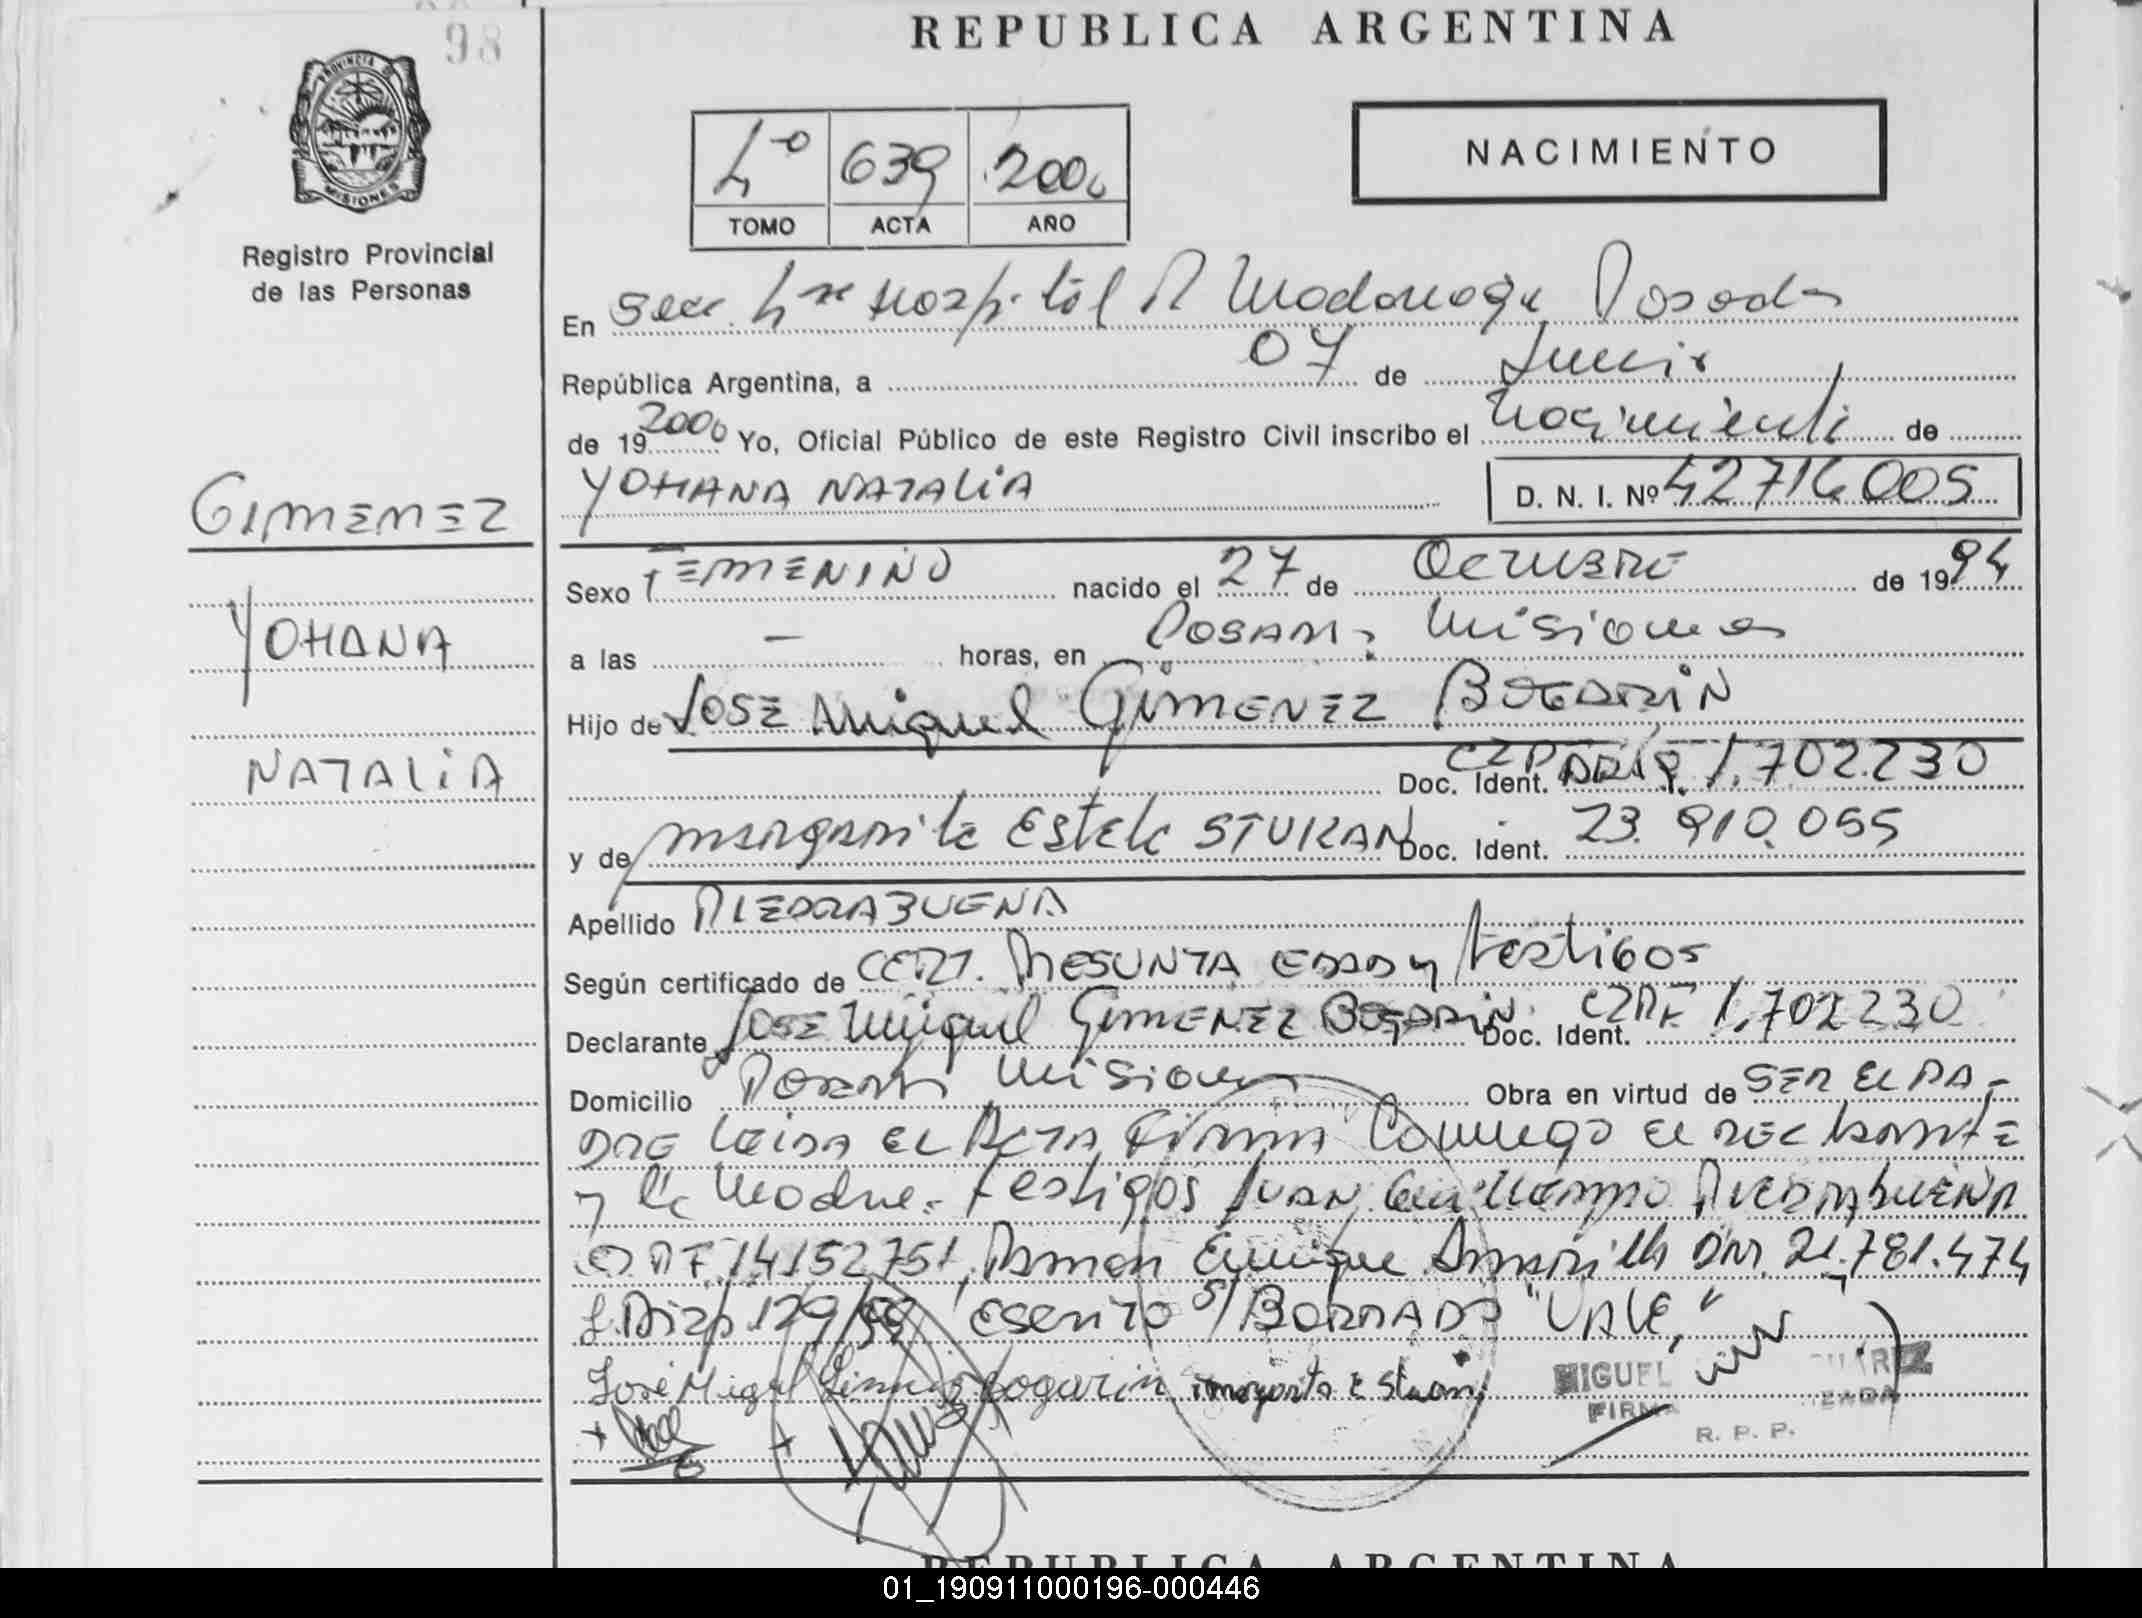 98
REPUBLICA ARGENTINA
PROVINCIA DE
MISIONES
Registro Provincial
de las Personas
4º 639 2000
TOMO ACTA AÑO
NACIMIENTO
En Secc. Hospital R Madariaga Posadas
República Argentina, a 07 de Junio
de 19 2000 Yo, Oficial Público de este Registro Civil inscribo el Nacimiento de
YOHANA NATALIA D. N. I. Nº 42716005
GIMENEZ
YOHANA
NATALIA
Sexo FEMENINO nacido el 27 de OCTUBRE de 1994
a las — horas, en Posadas Misiones
Hijo de JOSE Miguel GIMENEZ BOGARIN
Doc. Ident. 1.702.230
y de Margarita Estela STUKAN Doc. Ident. 23.910.055
Apellido PIEDRABUENA
Según certificado de CERT. PRESUNTA EDAD y Testigos
Declarante JOSE Miguel GIMENEZ BOGARIN Doc. Ident. 1.702.230
Domicilio Posadas Misiones Obra en virtud de SER EL PA-
DRE Leida EL ACTA Firma Conmigo el declarante
y la Madre. Testigos JUAN Guillermo PIEDRABUENA
14152751, Ramon Enrique Amarilla DNI. 21.781.474
Disp 129/99 ESCRITO S/ BORRADO "VALE"
José Miguel Gimenez Bogarin margarita E Stucan
MIGUEL SUAREZ
FIRMA
R. P. P.
REPUBLICA ARGENTINA
01_190911000196-000446